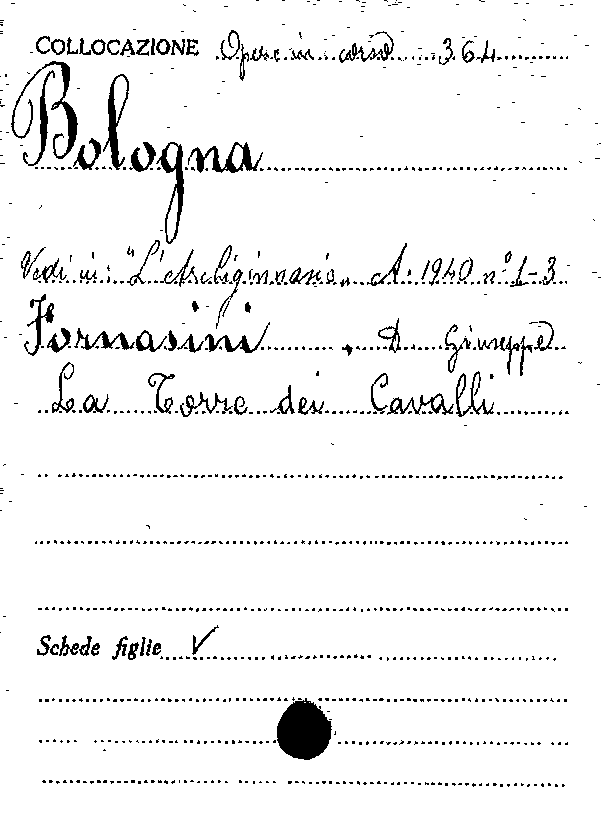 COLLOCAZIONE Opere in corso 364
Bologna
Vedi in: "L'Archiginnasio„ A. 1940 n° 1-3
Fornasini, D Giuseppe
La Torre dei Cavalli
Schede figlie ✓